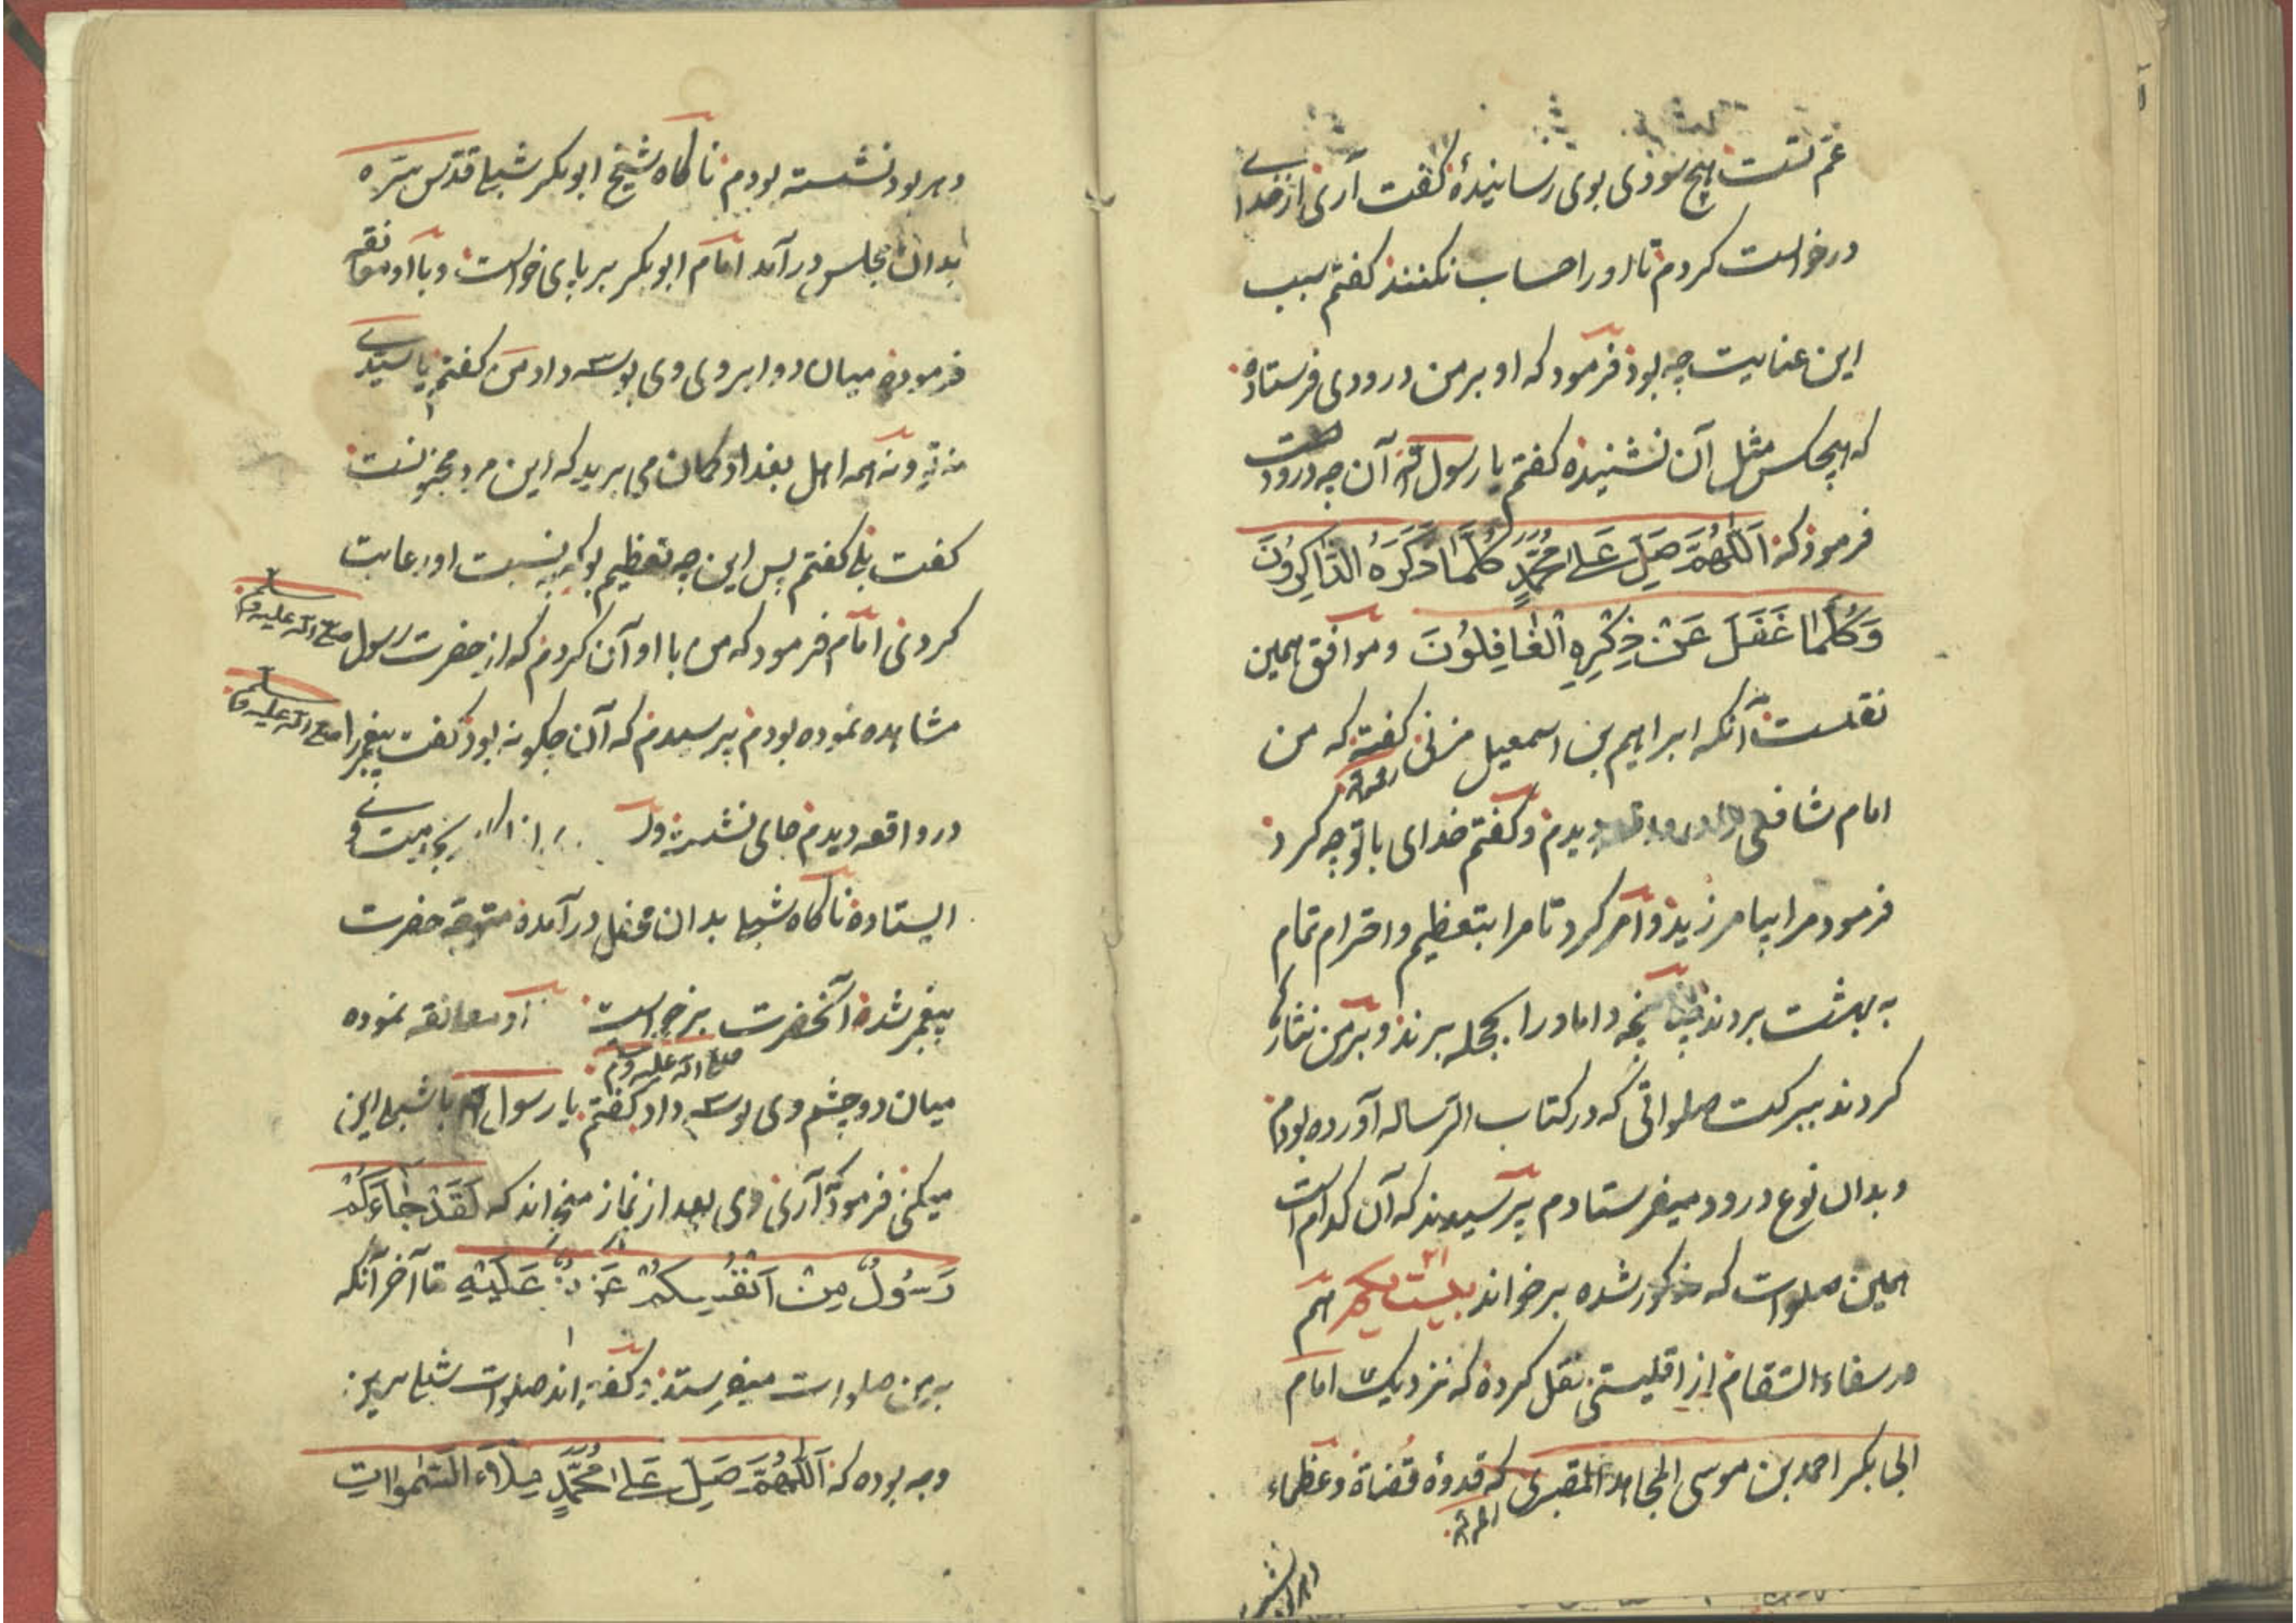 عم تست هیچ سودی بوی رسانیدهٔ گفت آری از خدای
درخواست کردم تا او را حساب نکنند گفتم سبب
این عنایت چه بود فرمود که او بر من درودی فرستاده
که هیچکس مثل آن نشنیده گفتم یا رسول الله آن چه درودست
فرمود که اَللّٰهُمَّ صَلِّ عَلٰی مُحَمَّدٍ کُلَّمَا ذَکَرَهُ الذَّاکِرُونَ
وَکُلَّمَا غَفَلَ عَنْ ذِکْرِهِ الْغَافِلُونَ و موافق همین
نقلست آنکه ابراهیم بن اسمعیل مزنی گفته که من
امام شافعی را در واقعه دیدم و گفتم خدای با تو چه کرد
فرمود مرا بیامرزید و امر کرد تا مرا بتعظیم و احترام تمام
به بهشت بردند چنانچه داماد را بحجله برند و بر من نثارها
کردند ببرکت صلواتی که در کتاب الرساله آورده بودم
و بدان نوع درود میفرستادم پرسیدند که آن کدام است
همین صلوات که مذکور شده برخواند بیست یکم هم
در شفاء السقام از اقلیستی نقل کرده که نزدیک امام
ابی بکر احمد بن موسی المجاهد المقبری که قدوهٔ قضاة و عظماء
دهر بود نشسته بودم ناگاه شیخ ابوبکر شبلی قدس سره
بدان مجلس درآمد امام ابوبکر بر پای خواست و با او معانقه
فرموده میان دو ابروی وی بوسه داد من گفتم یا سیدی
نه تو و نه همه اهل بغداد گمان می برید که این مرد مجنونست
گفت بلی گفتم پس این چه تعظیم بود که بنسبت او رعایت
کردی امام فرمود که من با او آن کردم که از حضرت رسول صلی الله علیه وسلم
مشاهده نموده بودم پرسیدم که آن چگونه بود گفت پیغمبر را صلی الله علیه وسلم
در واقعه دیدم جای نشسته بخدمت وی
ایستاده ناگاه شبلی بدان محفل درآمده متوجه حضرت
پیغمبر شده آنحضرت برخواست او معانقه نموده
صلی الله علیه وسلم
میان دو چشم وی بوسه داد گفتم یا رسول الله با شبلی این
میکنی فرمود که آری وی بعد از نماز میخواند که لَقَدْ جَاءَکُمْ
رَسُولٌ مِنْ اَنْفُسِکُمْ عَزِیزٌ عَلَیْهِ تا آخر آنکه
بر من صلوات میفرستد و گفته اند صلوات شبلی برین
وجه بوده که اَللّٰهُمَّ صَلِّ عَلٰی مُحَمَّدٍ مِلْاءَ السَّمٰوَاتِ